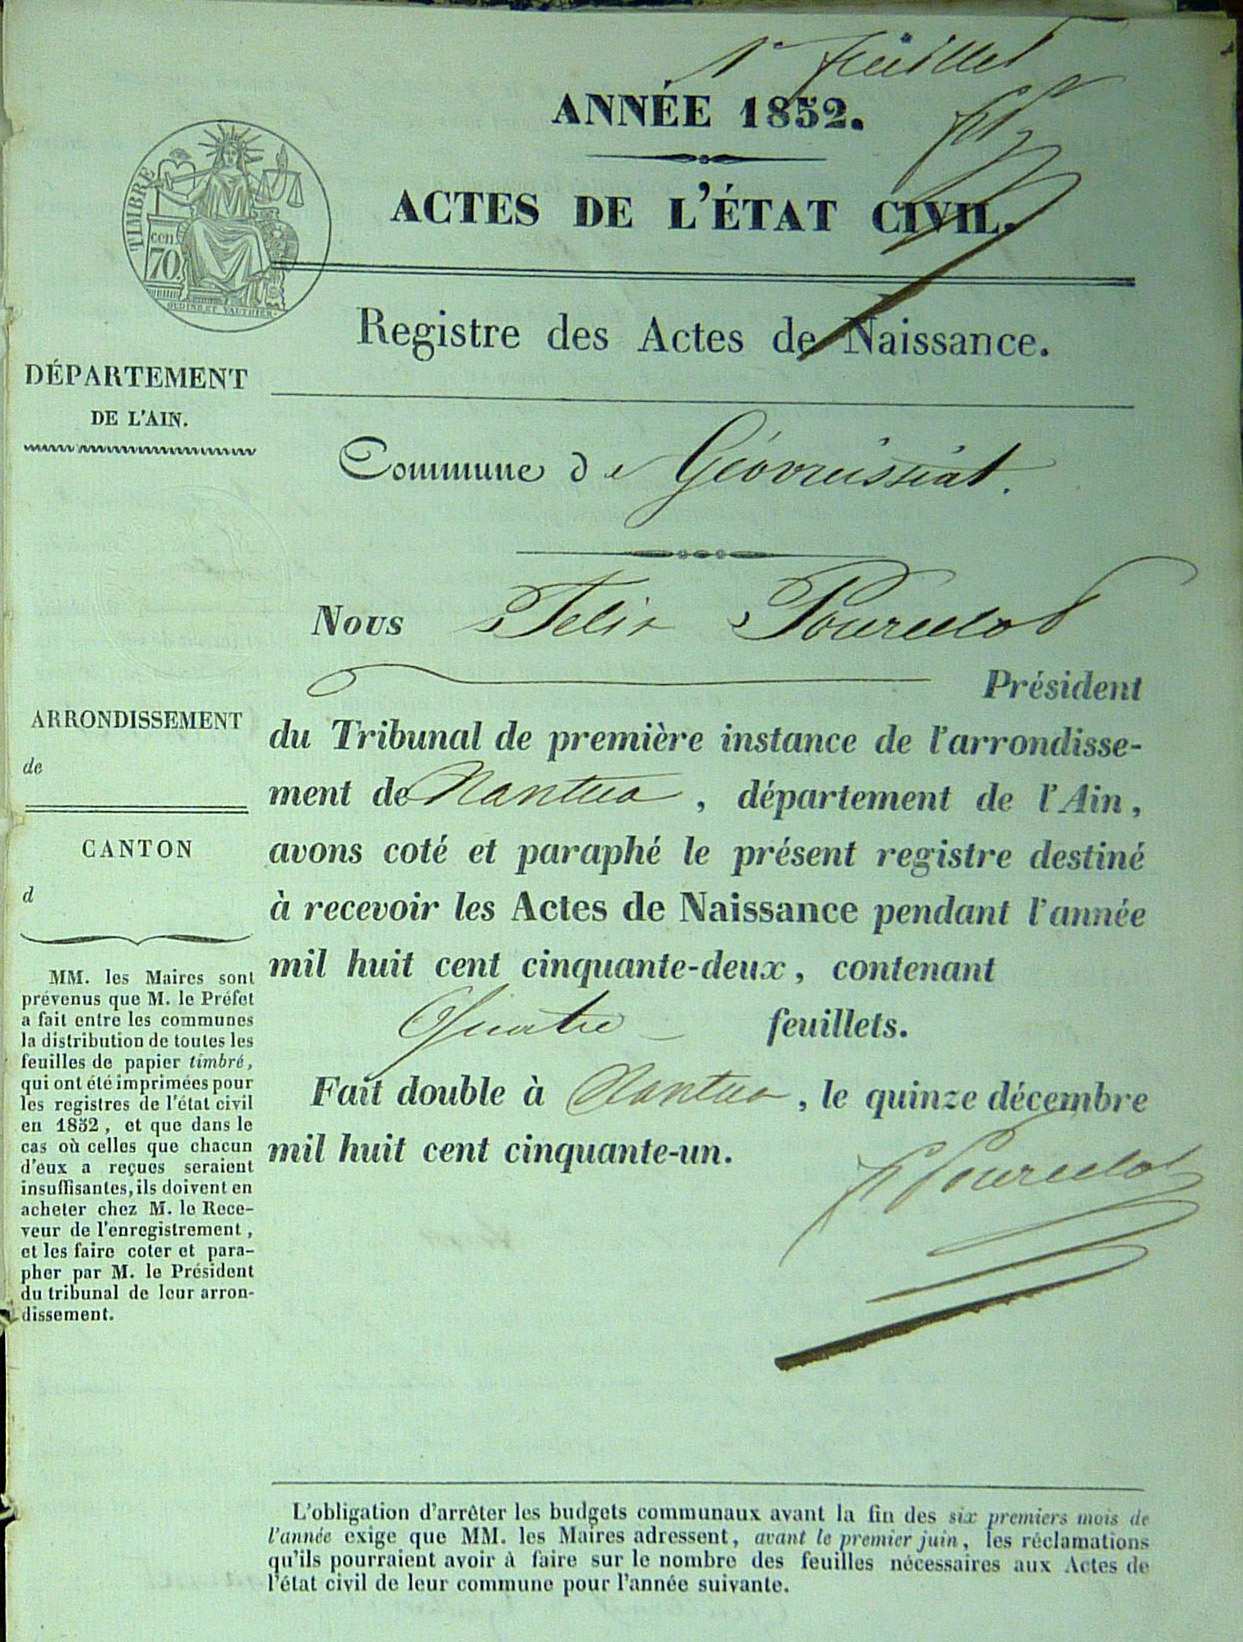 1er feuillet
ANNÉE 1852.
ACTES DE L'ÉTAT CIVIL.
TIMBRE
cen
70
OUDINE ET VAUTHIER
Registre des Actes de Naissance.
DÉPARTEMENT
DE L'AIN.
Commune de Géovreissiat.
Nous Felix Pourcelot
Président
du Tribunal de première instance de l'arrondisse-
ment de Nantua, département de l'Ain,
avons coté et paraphé le présent registre destiné
à recevoir les Actes de Naissance pendant l'année
mil huit cent cinquante-deux, contenant
Quatre feuillets.
Fait double à Nantua, le quinze décembre
mil huit cent cinquante-un.
F Pourcelot
ARRONDISSEMENT
de
CANTON
d
MM. les Maires sont
prévenus que M. le Préfet
a fait entre les communes
la distribution de toutes les
feuilles de papier timbré,
qui ont été imprimées pour
les registres de l'état civil
en 1852, et que dans le
cas où celles que chacun
d'eux a reçues seraient
insuffisantes, ils doivent en
acheter chez M. le Rece-
veur de l'enregistrement,
et les faire coter et para-
pher par M. le Président
du tribunal de leur arron-
dissement.
L'obligation d'arrêter les budgets communaux avant la fin des six premiers mois de
l'année exige que MM. les Maires adressent, avant le premier juin, les réclamations
qu'ils pourraient avoir à faire sur le nombre des feuilles nécessaires aux Actes de
l'état civil de leur commune pour l'année suivante.